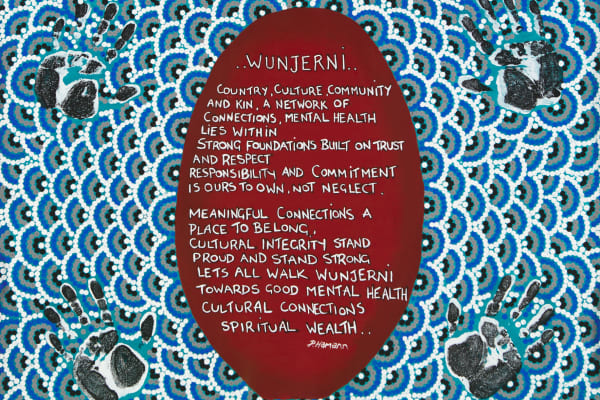 ..WUNJERNI..
COUNTRY, CULTURE, COMMUNITY
AND KIN, A NETWORK OF
CONNECTIONS, MENTAL HEALTH
LIES WITHIN
STRONG FOUNDATIONS BUILT ON TRUST
AND RESPECT
RESPONSIBILITY AND COMMITMENT
IS OURS TO OWN, NOT NEGLECT.
MEANINGFUL CONNECTIONS A
PLACE TO BELONG,
CULTURAL INTEGRITY STAND
PROUD AND STAND STRONG
LETS ALL WALK WUNJERNI
TOWARDS GOOD MENTAL HEALTH
CULTURAL CONNECTIONS
SPIRITUAL WEALTH..
P.Hamann